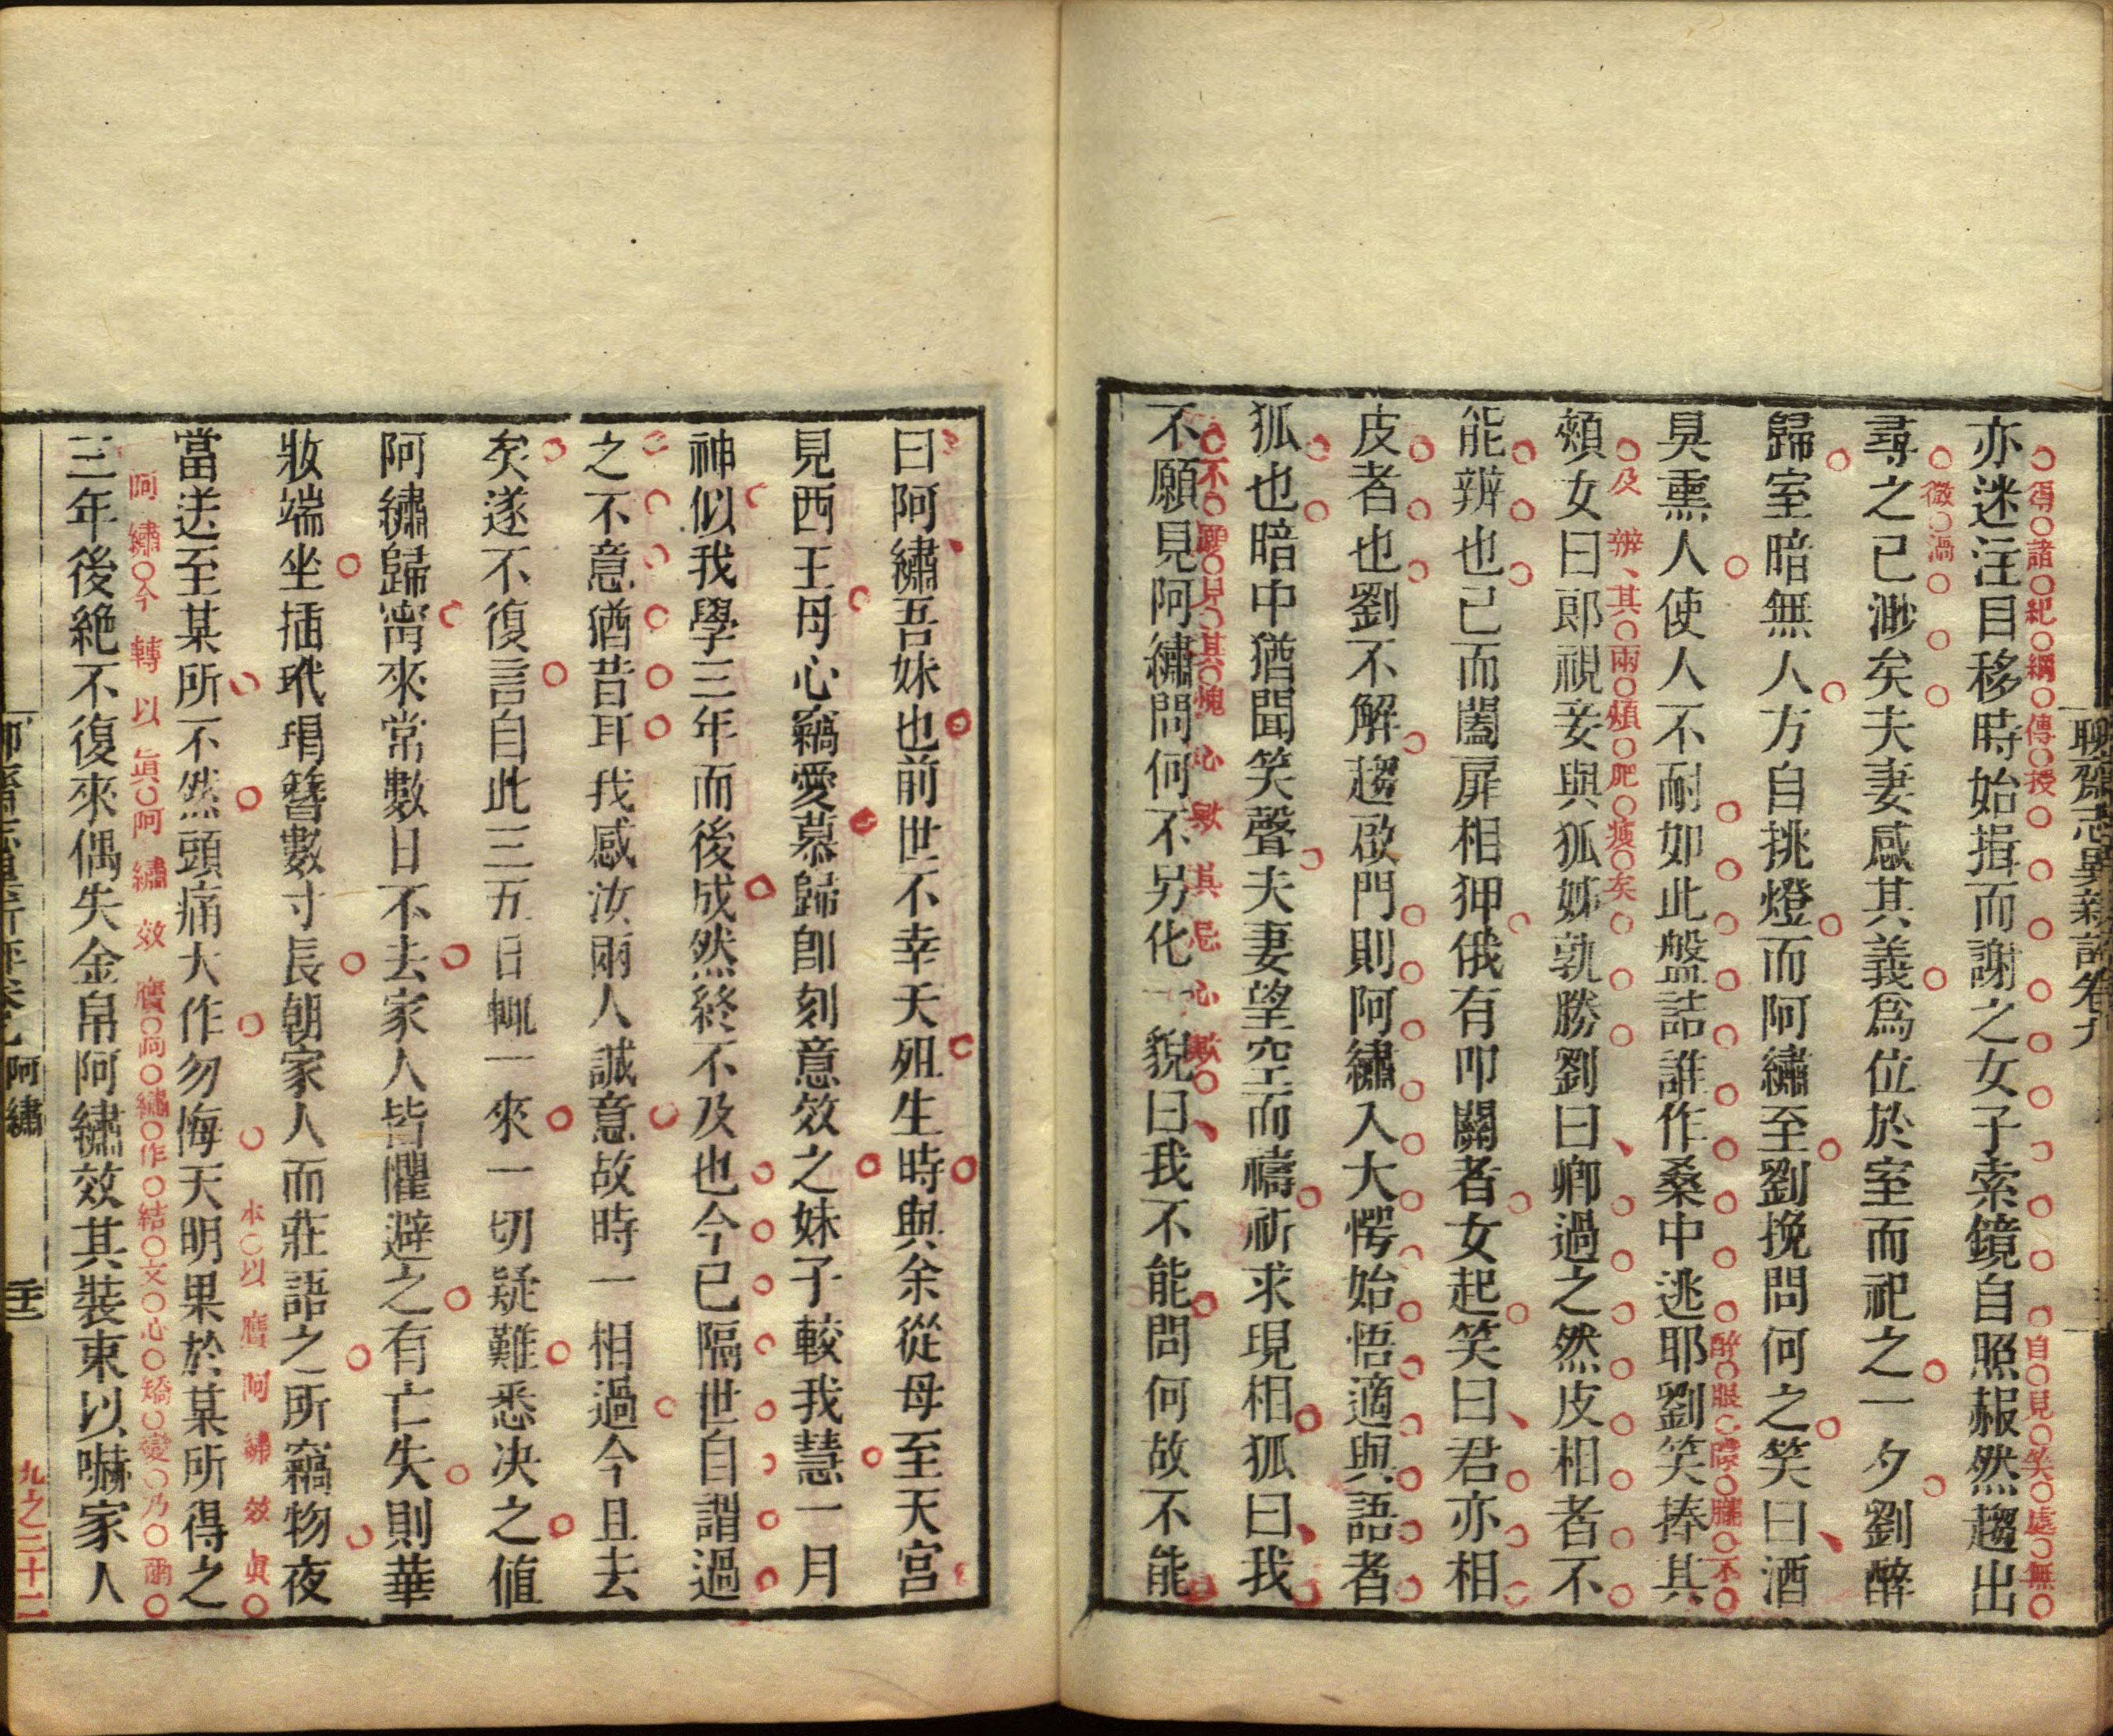 聊齋志異新評卷九
亦迷注目移時始揖而謝之女子索鏡自照赧然趨出
尋之已渺矣夫妻感其義爲位於室而祀之一夕劉醉
歸室暗無人方自挑燈而阿繡至劉挽問何之笑曰酒
臭熏人使人不耐如此盤詰誰作桑中逃耶劉笑捧其
頰女曰郎視妾與狐姊孰勝劉曰卿過之然皮相者不
能辨也已而闔扉相狎俄有叩關者女起笑曰君亦相
皮者也劉不解趨啟門則阿繡入大愕始悟適與語者
狐也暗中猶聞笑聲夫妻望空而禱祈求現相狐曰我
不願見阿繡問何不另化一貌曰我不能問何故不能
曰阿繡吾妹也前世不幸夭殂生時與余從母至天宮
見西王母心竊愛慕歸卽刻意效之妹子較我慧一月
神似我學三年而後成然終不及也今已隔世自謂過
之不意猶昔耳我感汝兩人誠意故時一相過今且去
矣遂不復言自此三五日輒一來一切疑難悉决之値
阿繡歸甯來常數日不去家人皆懼避之有亡失則華
妝端坐插玳瑁簪數寸長朝家人而莊語之所竊物夜
當送至某所不然頭痛大作勿悔天明果於某所得之
本以贗阿繡效眞
三年後絶不復來偶失金帛阿繡效其裝束以嚇家人
阿繡今轉以眞阿繡效贗阿繡作結文心矯變乃爾
阿繡
九之三十二